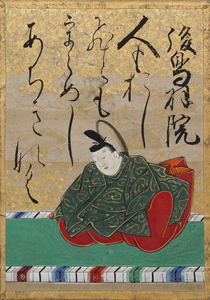 後鳥羽院
人もおし
ひとも
うらめし
あちきなく